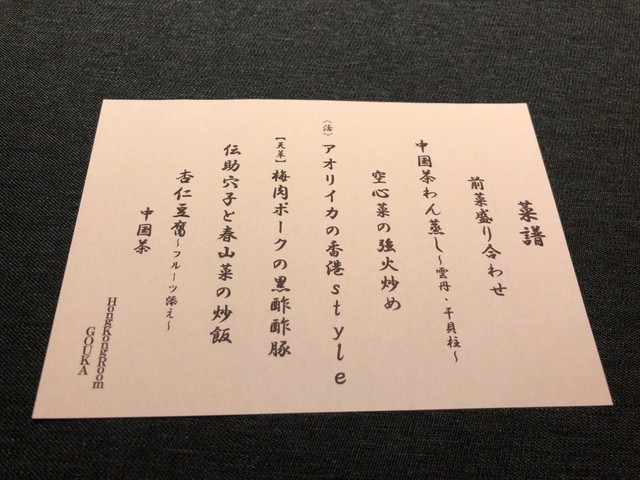 菜譜
前菜盛り合わせ
中国茶わん蒸し～雲丹・干貝柱～
空心菜の強火炒め
〈活〉アオリイカの香港style
【天草】梅肉ポークの黒酢酢豚
伝助穴子と春山菜の炒飯
杏仁豆腐～フルーツ添え～
中国茶
HongKongRoom
GOUKA